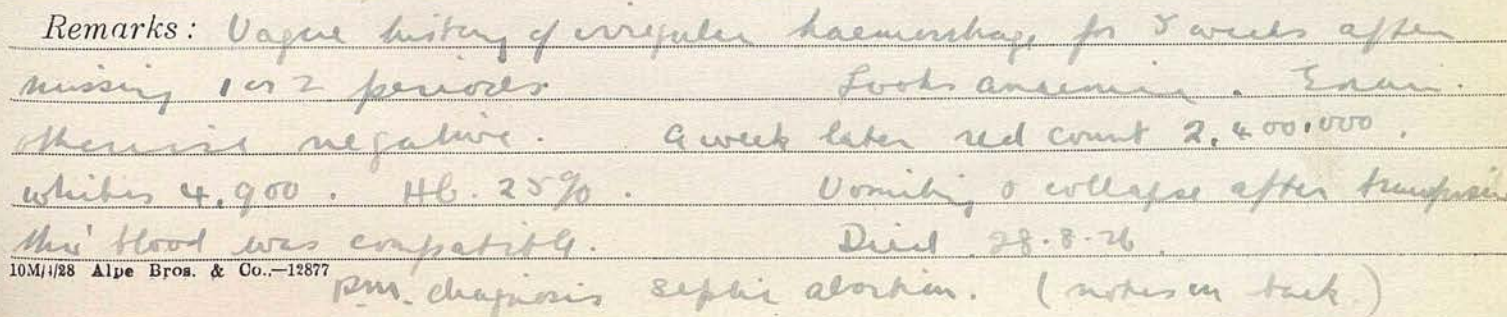 Remarks: Vague history of irregular haemorrhage for 5 weeks after
missing 1 or 2 periods. Looks anaemic. Exam.
otherwise negative. A week later red count 2,400,000.
whites 4,900. Hb. 25%. Vomiting & collapse after transfusion
tho' blood was compatible. Died 28.8.26.
10M/4/28 Alpe Bros. & Co.,—12877
P.m. diagnosis septic abortion. (notes on back)